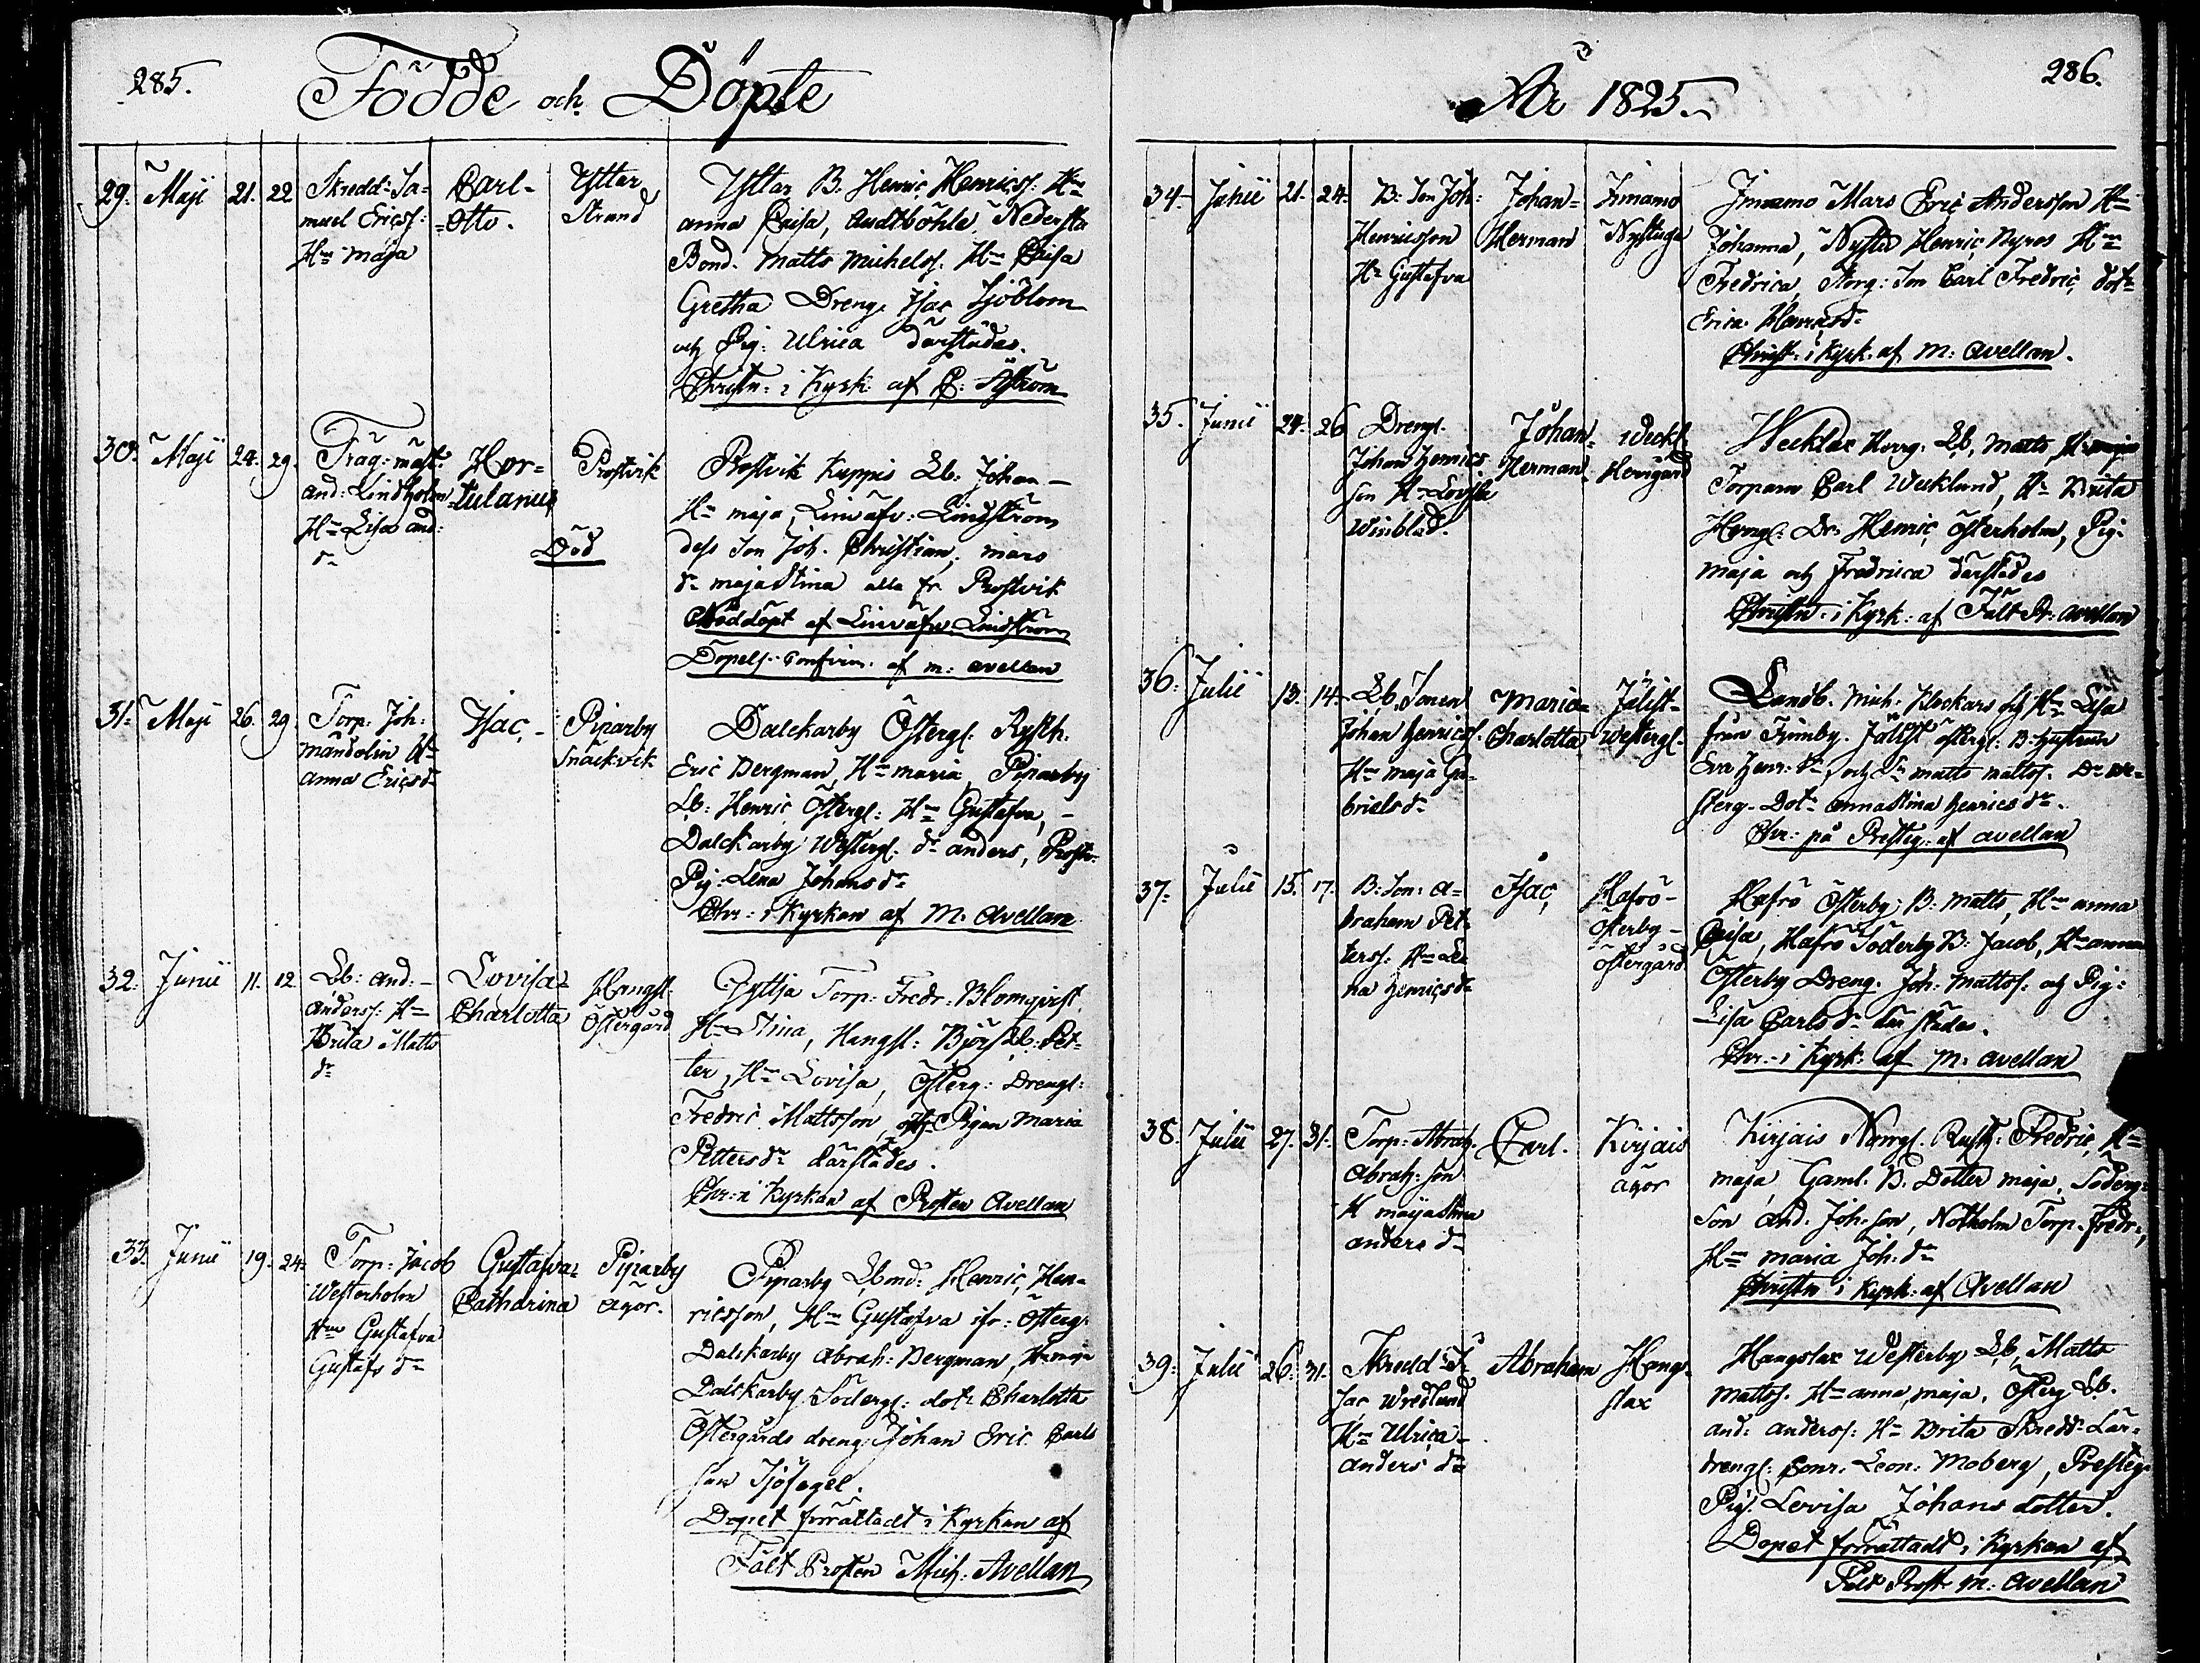 285.
Födde och Döpte
29. Maji 21. 22 Skredd: Sa=
muel Ericss:
Hu Maja
Carl-
Otto.
Ytter
Strand
Ytter B. Henric Henricss: Hu
anna Caisa,
Bond. Matts Michelss. Hu Caisa
Gretha Dreng. Isac Sjöblom
och Pig: Ulrica därstädes.
Christn: i Kyrk: af C: Åström
30. Maji 24. 29. Träg: mäst:
And: Lindholm
Hu Lisa And:
dr
Hor=
tulanus
Död
Prostvik
Prostvik Kuppis Lb: Johan –
Hu Maja, Linväfv: Lindström
dess Son Joh. Christian, Mårs
dr Maja Stina alla fr. Prostvik
Nöddöpt af Linväfv: Lindström
Döpels: Confirm: af M: Avellan
31. Maji 26. 29 Torp: Joh:
Mandolin Hu
Anna Ericsdr
Isac, -
Piparby
Snäckvik
Dalckarby Östergl. Rysth.
Eric Bergman, Hu Maria, Piparby
Lb: Henric Östergl: Hu Gustafva, –
Dalckarby Westergl. dr Anders, Prostv:
Pig: Lena Johansdr
Chr: i Kyrkan af M. Avellan
32. Junii 11. 12 Lb: And:-
Anderss: Hu
Brita Matts
dr
Lovisa=
Charlotta
Hangsl:
Östergård
Gyttja Torp: Fredr: Blomqvist,
Hu Stina, Hangsl: Björs Lb: Pet=
ter, Hu Lovisa, Österg: Drengl:
Fredric Mattsson, och Pigan Maria
Pettersdr därstädes.
Chr: i Kyrkan af Prosten Avellan
33. Junii 19. 24. Torp: Jacob
Westerholm
Hu Gustafva
Gustafs dr
Gustafva=
Catharina
Piparby
ägor.
Piparby Lbmd: Henric Hen=
ricsson, Hu Gustafva Österg:
Dalskarby Abrah: Bergman, Hu Maja
Dalskarby Södergl: dotr Charlotta
Östergårds dreng: Johan Eric Carls
son Sjöfogel.
Dopet förrättadt i Kyrkan af
Fält Prosten Mich. Avellan
286.
År 1825.
34. Junii 21. 24. B: Son Joh:
Henricsson
Hu Gustafva
Johan=
Herman
Finnamo
Nystuga
Finnamo Mårs Eric Andersson Hu
Johanna, Nystu Henric Hu
Fredrica, Storg: Son Carl Fredric, dotr
Erica Henricsdr
Christ: i Kyrk. af M: Avellan.
35. Junii 24. 26 Drengl.
Johan Henrics
son Hu Lovisa
Winblad.
Johan
Herman
Weckl:
Horrgård
Wecklax Horrg. Lb, Matts, Hu Maja
Torparn Carl Wecklund, Hu Brita
Horrgl: Dr. Henric Österholm, Pig:
Maja och Fredrica därstädes
Christn: i Kyrk: af Fält Pr: Avellan
36. Julii 13. 14. Lb, Sonen
Johan Henricss.
Hu Maja Ga=
brielsdr
Maria=
Charlotta
Jälist-
Westergl-
Landb. Mich. Klockars och Hu Lisa
från Kimby. Jälist Östergl: B: Hustrun
Eva Henr. dr, och Dr Matts Mattss. Dr We=
sterg. Dotr Anna Stina Henricsdr.
Chr: på Presteg: af Avellan
37. Julii 15. 17. B: Son: A=
braham Pet=
terss: Hu Le=
na Henricsdr
Isac,
Hafrö-
Österby-
Östergård
Hafrö Österby B: Matts, Hu Anna
Caisa, Hafrö Söderby B: Jacob, Hu Anna
Österby Dreng. Joh: Mattss. och Pig:
Lisa Carlsdr därstädes.
Chr. i Kyrk: af M. Avellan
38. Julii 27. 31. Torp: Abrah.
Abrah: son
H Maija Stina
Anders dr
Carl.
Kirjais
ägor
Kirjais Norrgl. Rusth: Fredric, Hu
Maja, Gaml. B. Dotter Maja, Söderg:
Son And. Joh: son, Notholm Torp: Fredr:,
Hu Maria Joh. dr
Christn i Kyrk: af Avellan
39. Julii 26. 31. Skredd: I=
sac Wredlund
Hu Ulrica-
Anders dr
Abraham
Hang-
slax
Hangslax Westerby Lb, Matts
Mattss. Hu Anna, Maja, Österg Lb.
And: Anderss: Hu Brita Skredd: Lär=
drengl: Conr: Leon: Moberg, Presteg:
Pig. Lovisa Johans dotter.
Dopet förrättadt i Kyrkan af
Fält Prost M: Avellan